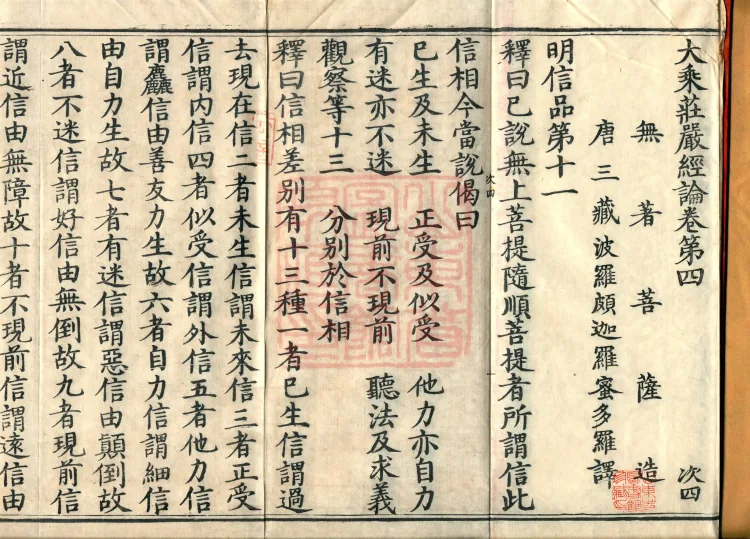 大乘莊嚴經論卷第四 次四
無著菩薩造
唐三藏波羅頗迦羅蜜多羅譯
明信品第十一
釋曰已說無上菩提隨順菩提者所謂信此
次四
信相今當說偈曰
已生及未生 正受及似受 他力亦自力
有迷亦不迷 現前不現前 聽法及求義
觀察等十三 分別於信相
釋曰信相差別有十三種一者已生信謂過
去現在信二者未生信謂未來信三者正受
信謂內信四者似受信謂外信五者他力信
謂麤信由善友力生故六者自力信謂細信
由自力生故七者有迷信謂惡信由顛倒故
八者不迷信謂好信由無倒故九者現前信
謂近信由無障故十者不現前信謂遠信由